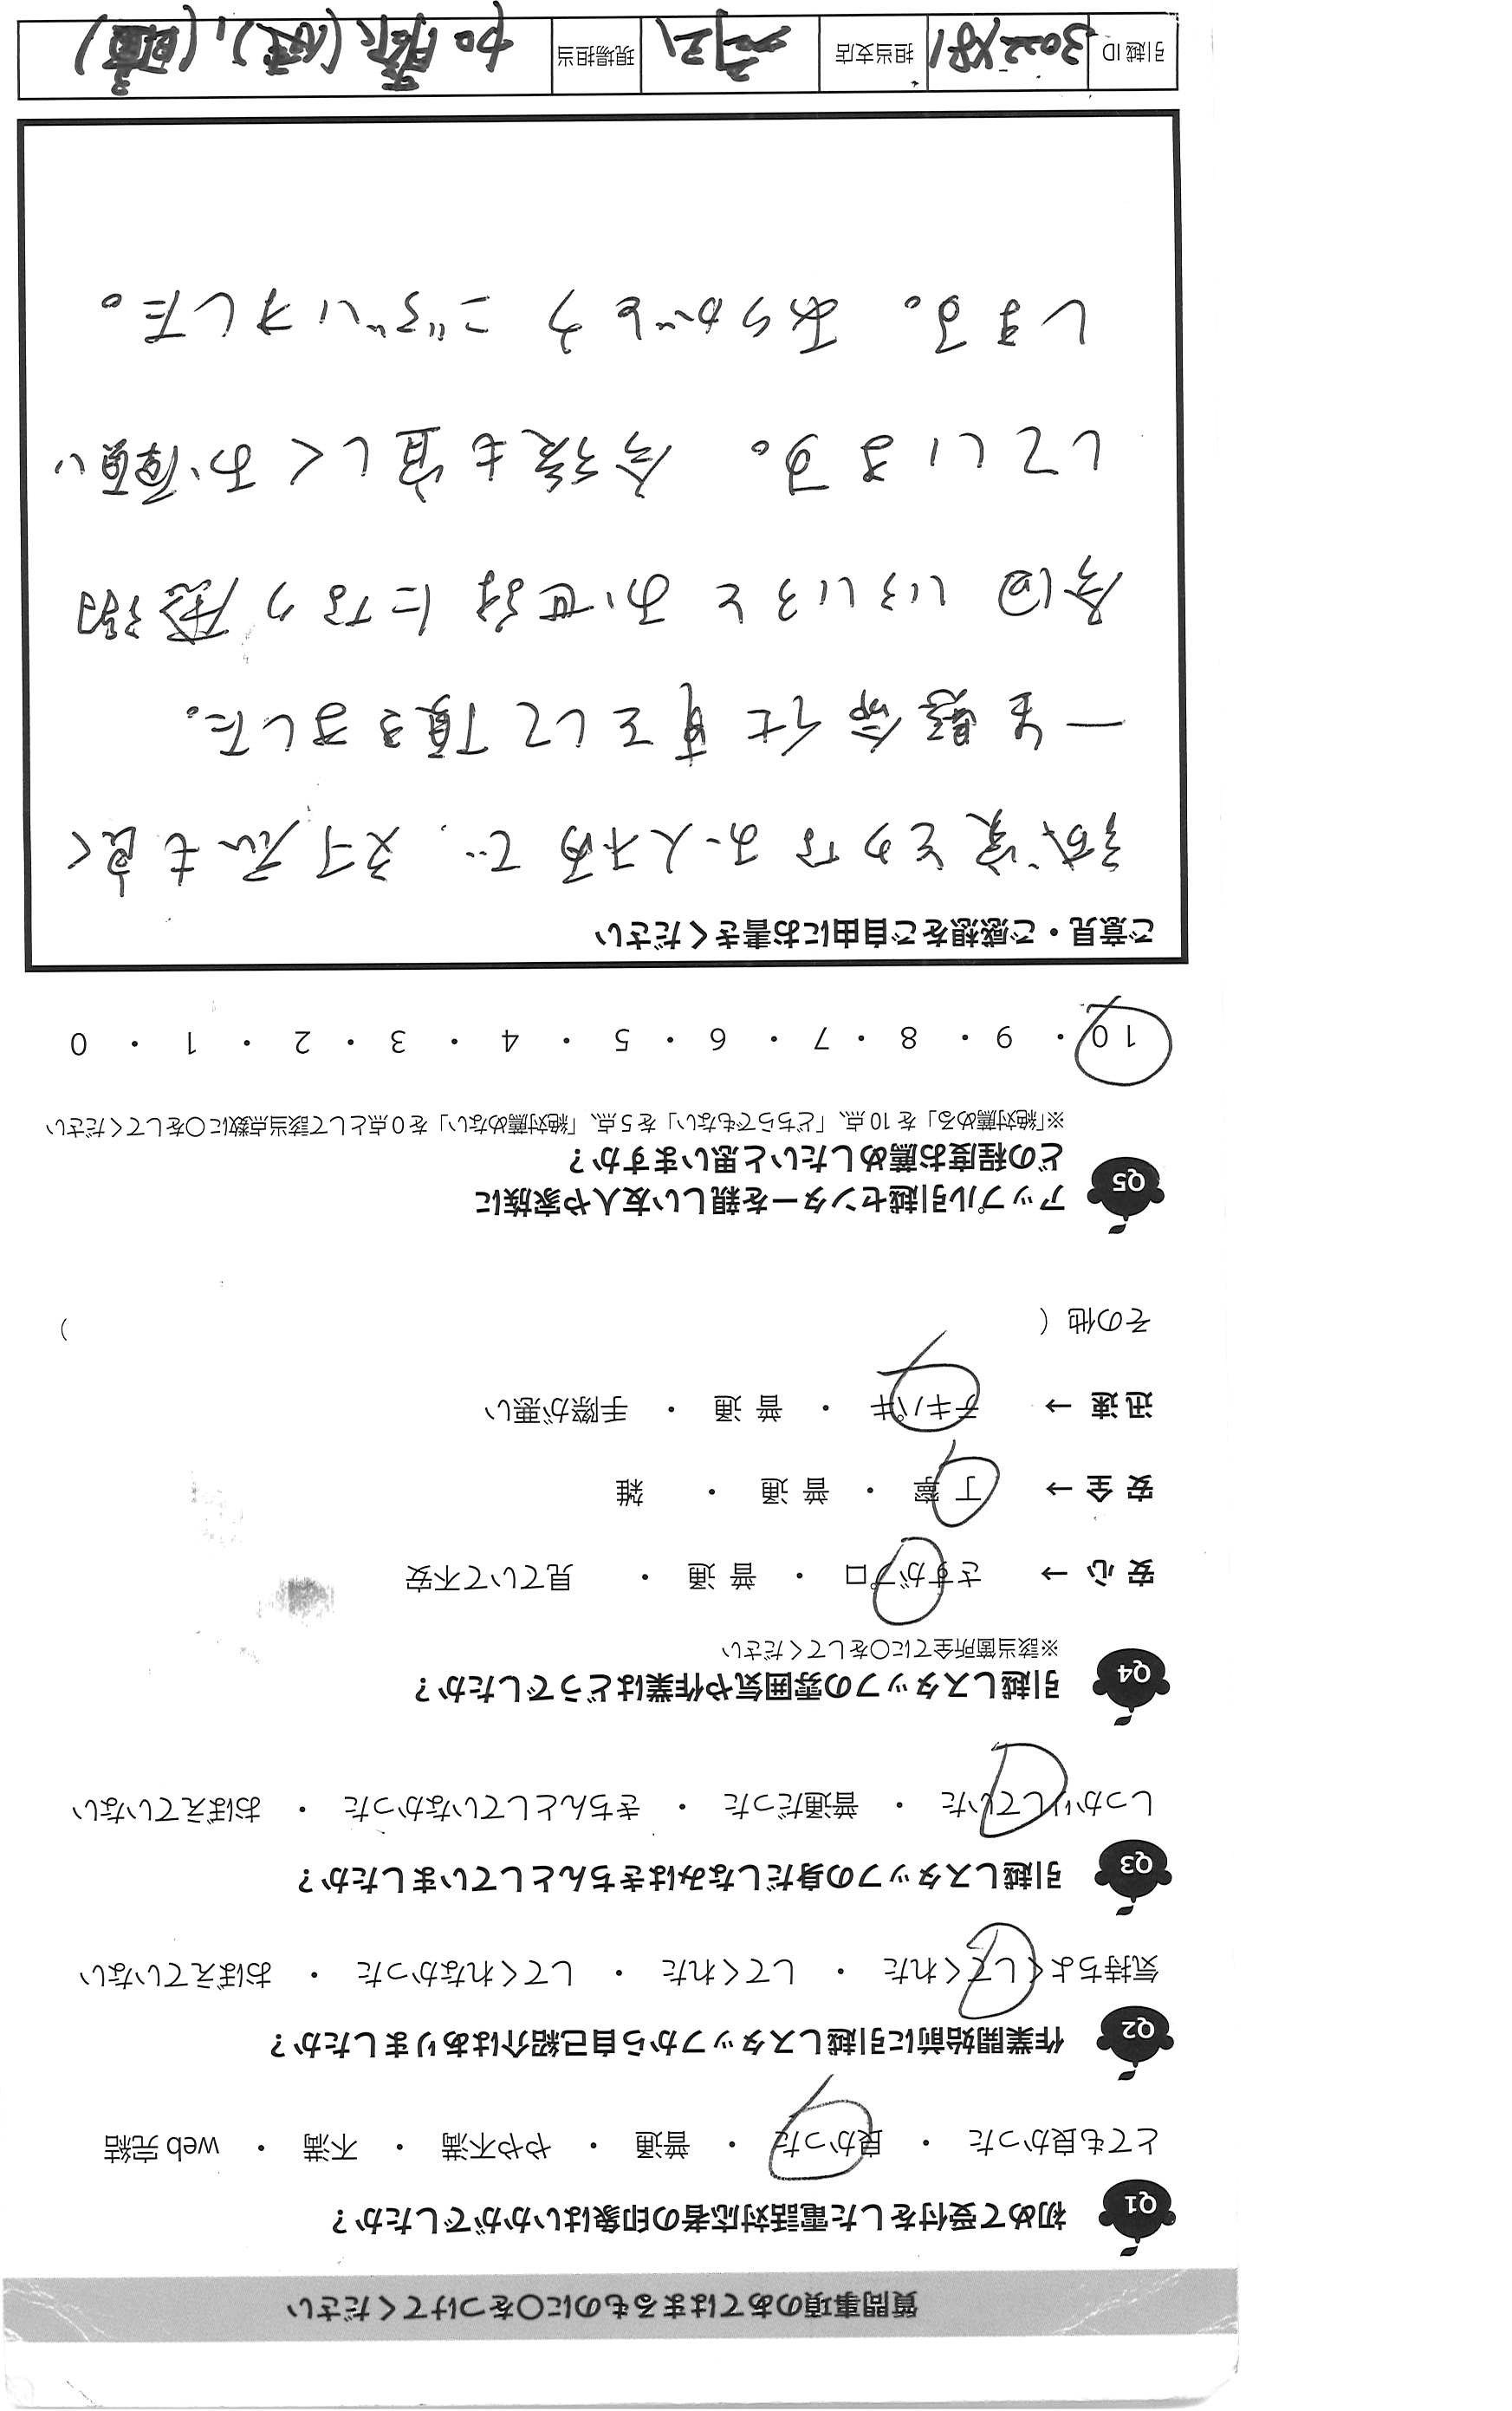 質問事項のあてはまるものに〇をつけてください
Q1 初めて受付をした電話対応者の印象はいかがでしたか?
とても良かった ・ 良かった ・ 普通 ・ やや不満 ・ 不満 ・ web 完結
Q2 作業開始前に引越しスタッフから自己紹介はありましたか?
気持ちよくしてくれた ・ してくれた ・ してくれなかった ・ おぼえていない
Q3 引越しスタッフの身だしなみはきちんとしていましたか?
しっかりしていた ・ 普通だった ・ きちんとしていなかった ・ おぼえていない
Q4 引越しスタッフの雰囲気や作業はどうでしたか?
※該当箇所全てに〇をしてください
安 心 → さすがプロ ・ 普 通 ・ 見ていて不安
安 全 → 丁 寧 ・ 普 通 ・ 雑
迅 速 → テキパキ ・ 普 通 ・ 手際が悪い
その他 ( )
Q5 アップル引越センターを親しい友人や家族に
どの程度お薦めしたいと思いますか?
※「絶対薦める」を 10 点、「どちらでもない」を 5 点、「絶対薦めない」を 0 点として該当点数に〇をしてください
10 ・ 9 ・ 8 ・ 7 ・ 6 ・ 5 ・ 4 ・ 3 ・ 2 ・ 1 ・ 0
ご意見・ご感想をご自由にお書きください
誠実そうなお人柄で、対応も良く
一生懸命仕事をして頂きました。
今回いろいろとお世話になり感謝
しています。今後も宜しくお願い
します。ありがとうございました。
引越 ID 担当支店 現場担当 加藤